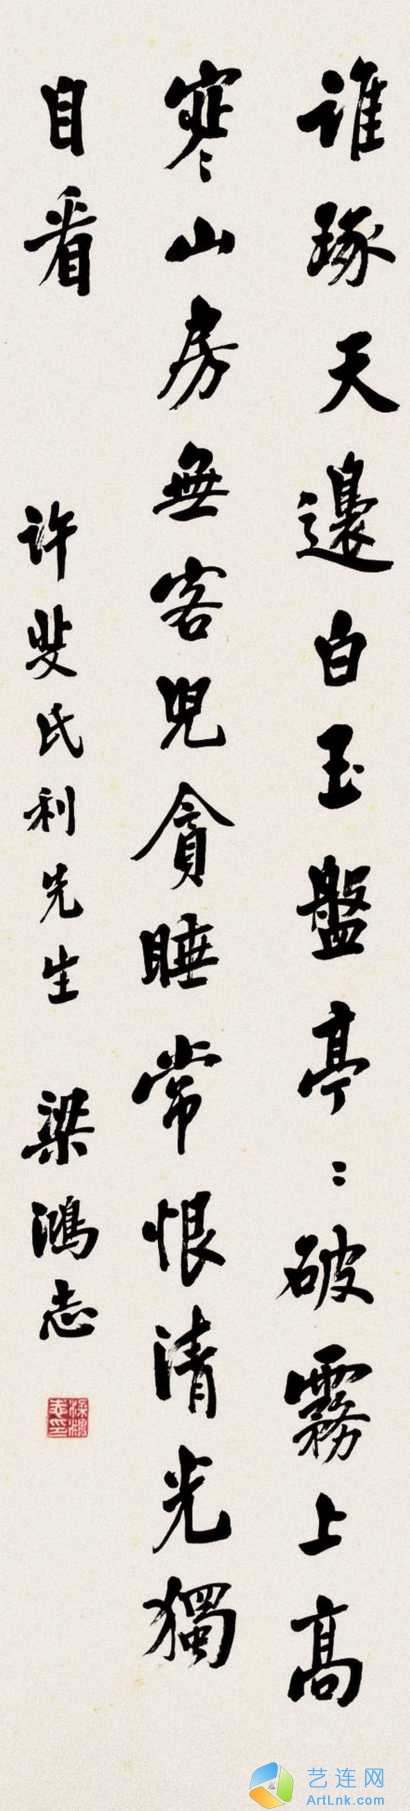 誰琢天邊白玉盤亭〻破霧上高
寒山房無客兒貪睡常恨清光獨
自看
許斐氏利先生 梁鴻志
艺连网
ArtLnk.com